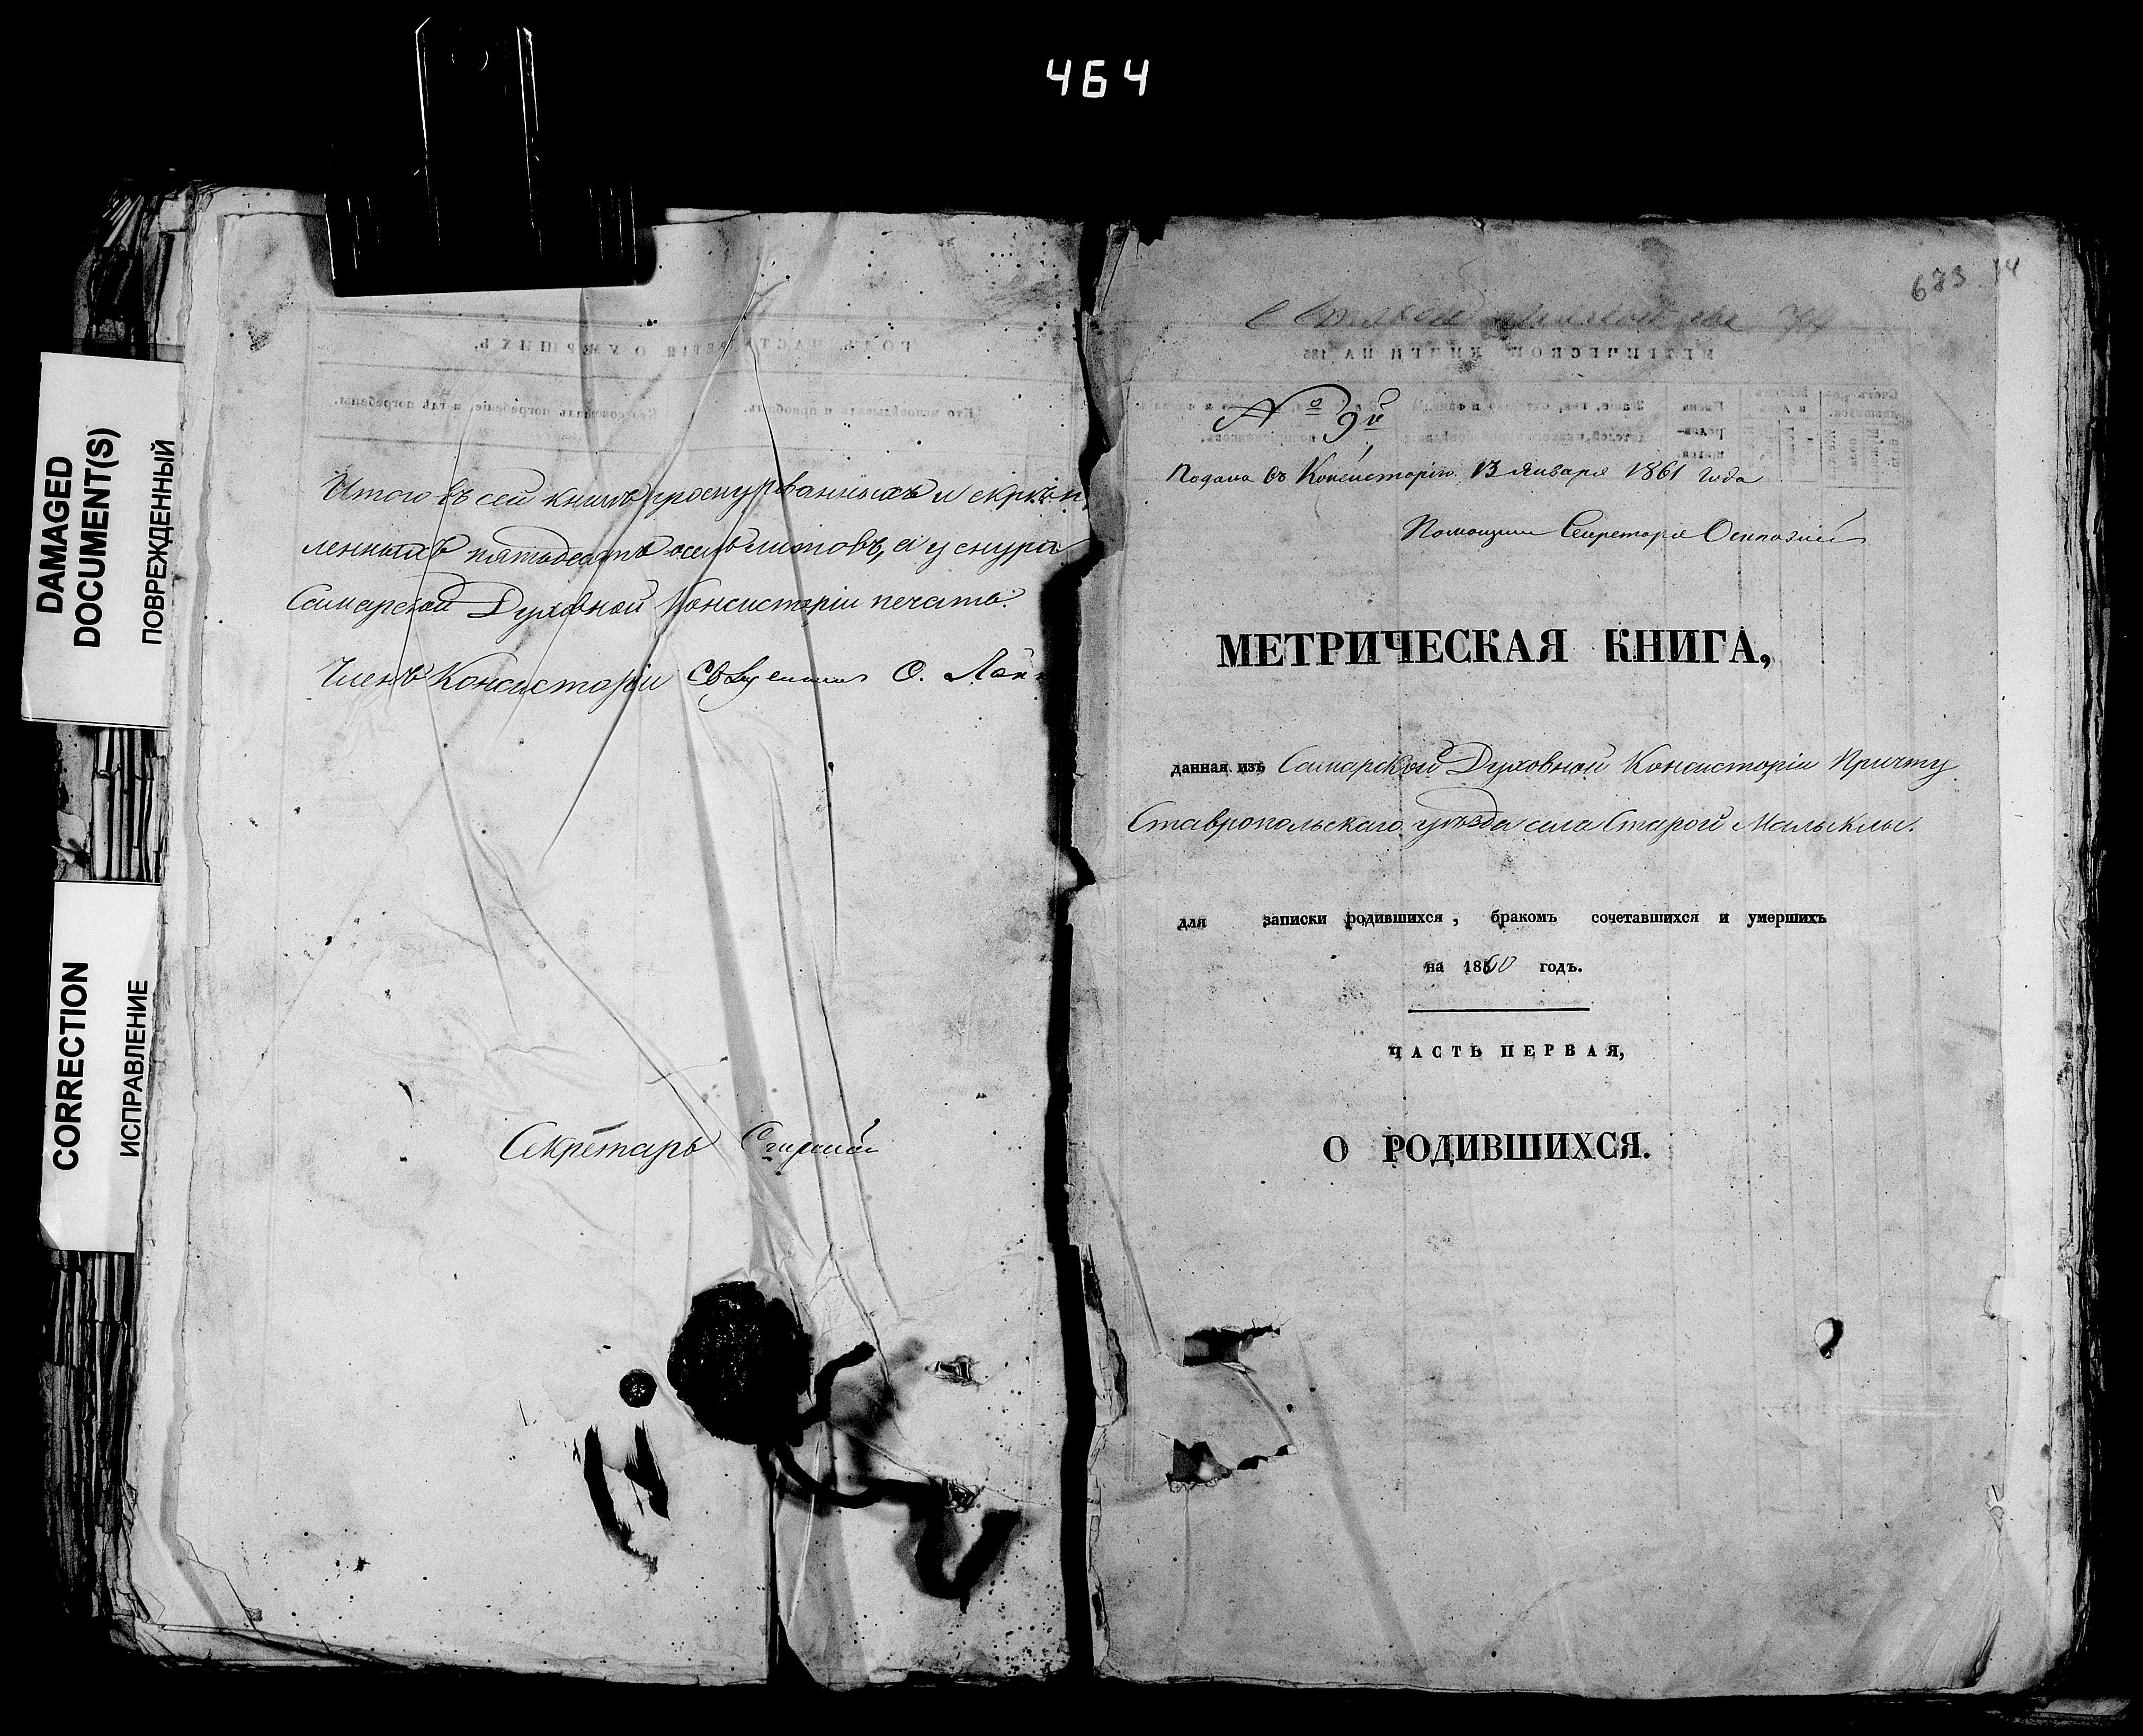 464
DAMAGED
DOCUMENT(S)
ПОВРЕЖДЕННЫЙ
CORRECTION
ИСПРАВЛЕНИЕ
Итого въ сей книгѣ прошнурованныхъ и скрѣп
ленныхъ пятьдесятъ листовъ, а у снура
Самарской Духовной Консисторіи печать.
Членъ Консисторіи Священникъ
Секретарь
683 14
№ 9й
Подана въ Консисторію 13 Января 1861 года
Помощник Секретаря
МЕТРИЧЕСКАЯ КНИГА,
данная изъ Самарской Духовной Консисторіи Причту
Ставропольскаго уѣзда села Старой Малыклы.
для записки родившихся, бракомъ сочетавшихся и умершихъ
на 1860 годъ.
ЧАСТЬ ПЕРВАЯ,
О РОДИВШИХСЯ.